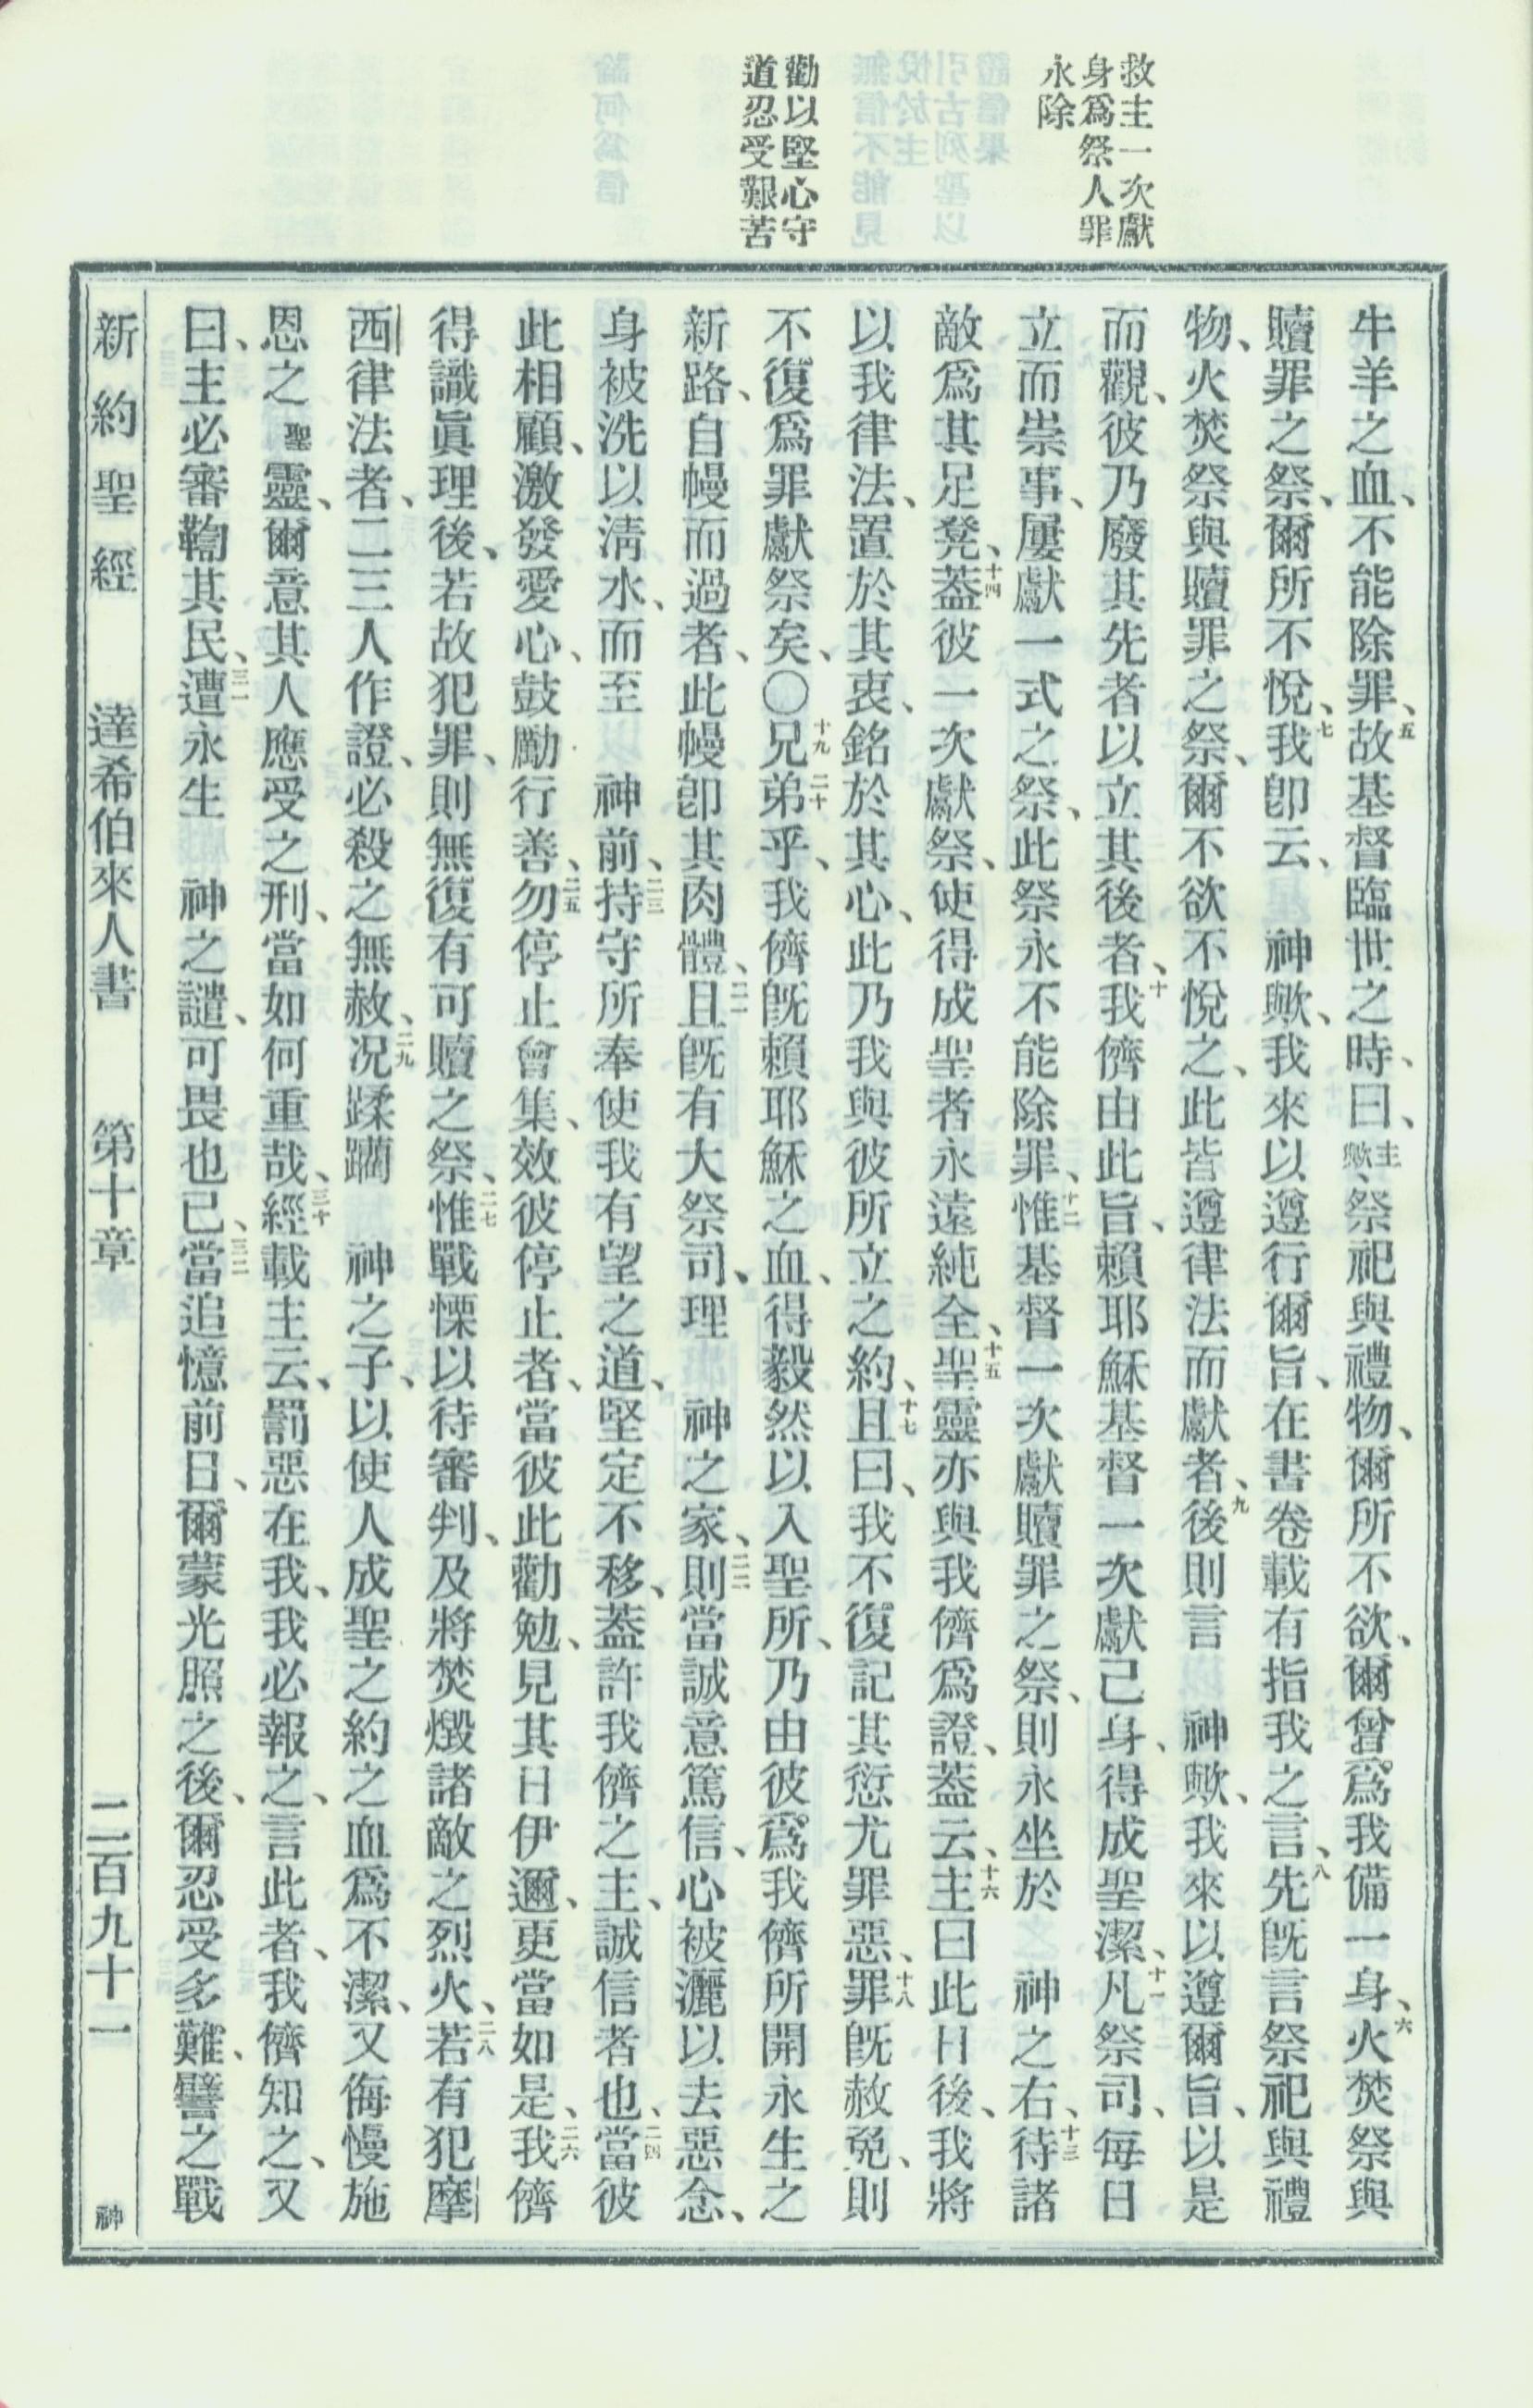 救主一次獻
身爲祭人罪
永除
勸以堅心守
道忍受艱苦
牛羊之血、不能除罪、五故基督臨世之時、曰、主歟、祭祀與禮物、爾所不欲、爾曾爲我備一身、六火焚祭與
贖罪之祭、爾所不悅、七我卽云、神歟、我來以遵行爾旨、在書卷載有指我之言、八先旣言祭祀與禮
物、火焚祭與贖罪之祭、爾不欲不悅之、此皆遵律法而獻者、九後則言 神歟、我來以遵爾旨、以是
而觀、彼乃廢其先者以立其後者、十我儕由此旨、賴耶穌基督一次獻己身、得成聖潔、十一凡祭司、每日
立而崇事、屢獻一式之祭、此祭永不能除罪、十二惟基督一次獻贖罪之祭、則永坐於 神之右、十三待諸
敵爲其足凳、十四蓋彼一次獻祭、使得成聖者永遠純全、十五聖靈亦與我儕爲證、蓋云、十六主曰此日後、我將
以我律法、置於其衷、銘於其心、此乃我與彼所立之約、十七且曰、我不復記其愆尤罪惡、十八罪旣赦免、則
不復爲罪獻祭矣、〇十九兄弟二十乎、我儕旣賴耶穌之血、得毅然以入聖所、乃由彼爲我儕所開永生之
新路、自幔而過者、此幔卽其肉體、二一且旣有大祭司、理 神之家、二二則當誠意篤信、心被灑以去惡念、
身被洗以淸水、而至 神前、二三持守所奉使我有望之道、堅定不移、蓋許我儕之主、誠信者也、二四當彼
此相顧、激發愛心、鼓勵行善、二五勿停止會集、效彼停止者、當彼此勸勉、見其日伊邇、更當如是、二六我儕
得識眞理後、若故犯罪、則無復有可贖之祭、二七惟戰慄以待審判、及將焚燬諸敵之烈火、二八若有犯摩
西律法者、二三人作證、必殺之無赦、二九况蹂躪 神之子、以使人成聖之約之血爲不潔、又侮慢施
恩之聖靈、爾意其人應受之刑、當如何重哉、三十經載主云、罰惡在我、我必報之、言此者、我儕知之、又
曰、主必審鞫其民、三一遭永生 神之譴、可畏也已、三二當追憶前日、爾蒙光照之後、爾忍受多難、譬之戰
新約聖經 達希伯來人書 第十章 二百九十一 神